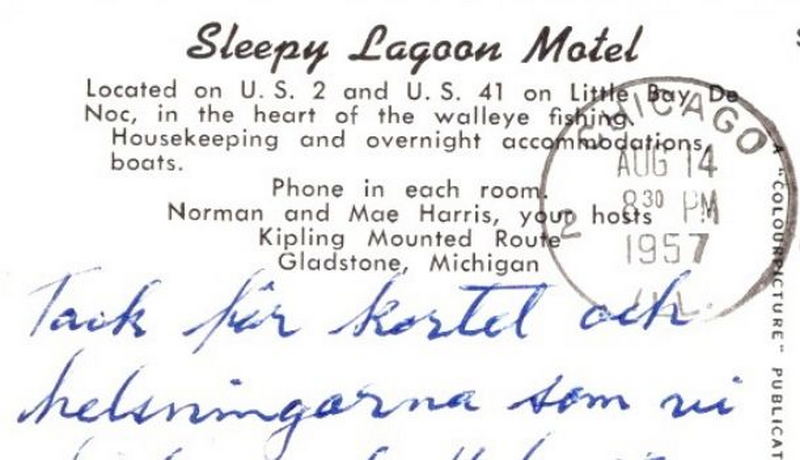 Sleepy Lagoon Motel
Located on U. S. 2 and U. S. 41 on Little Bay De
Noc, in the heart of the walleye fishing.
Housekeeping and overnight accommodations,
boats.
Phone in each room.
Norman and Mae Harris, your hosts
Kipling Mounted Route
Gladstone, Michigan
CHICAGO
AUG 14
8 30 PM
2
1957
ILL.
A "COLOURPICTURE" PUBLICAT
Tack för kortet och
helsningarna som vi